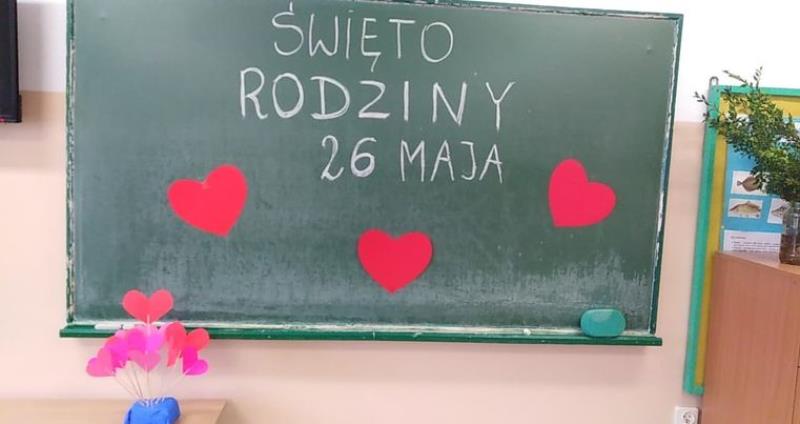 ŚWIĘTO
RODZINY
26 MAJA